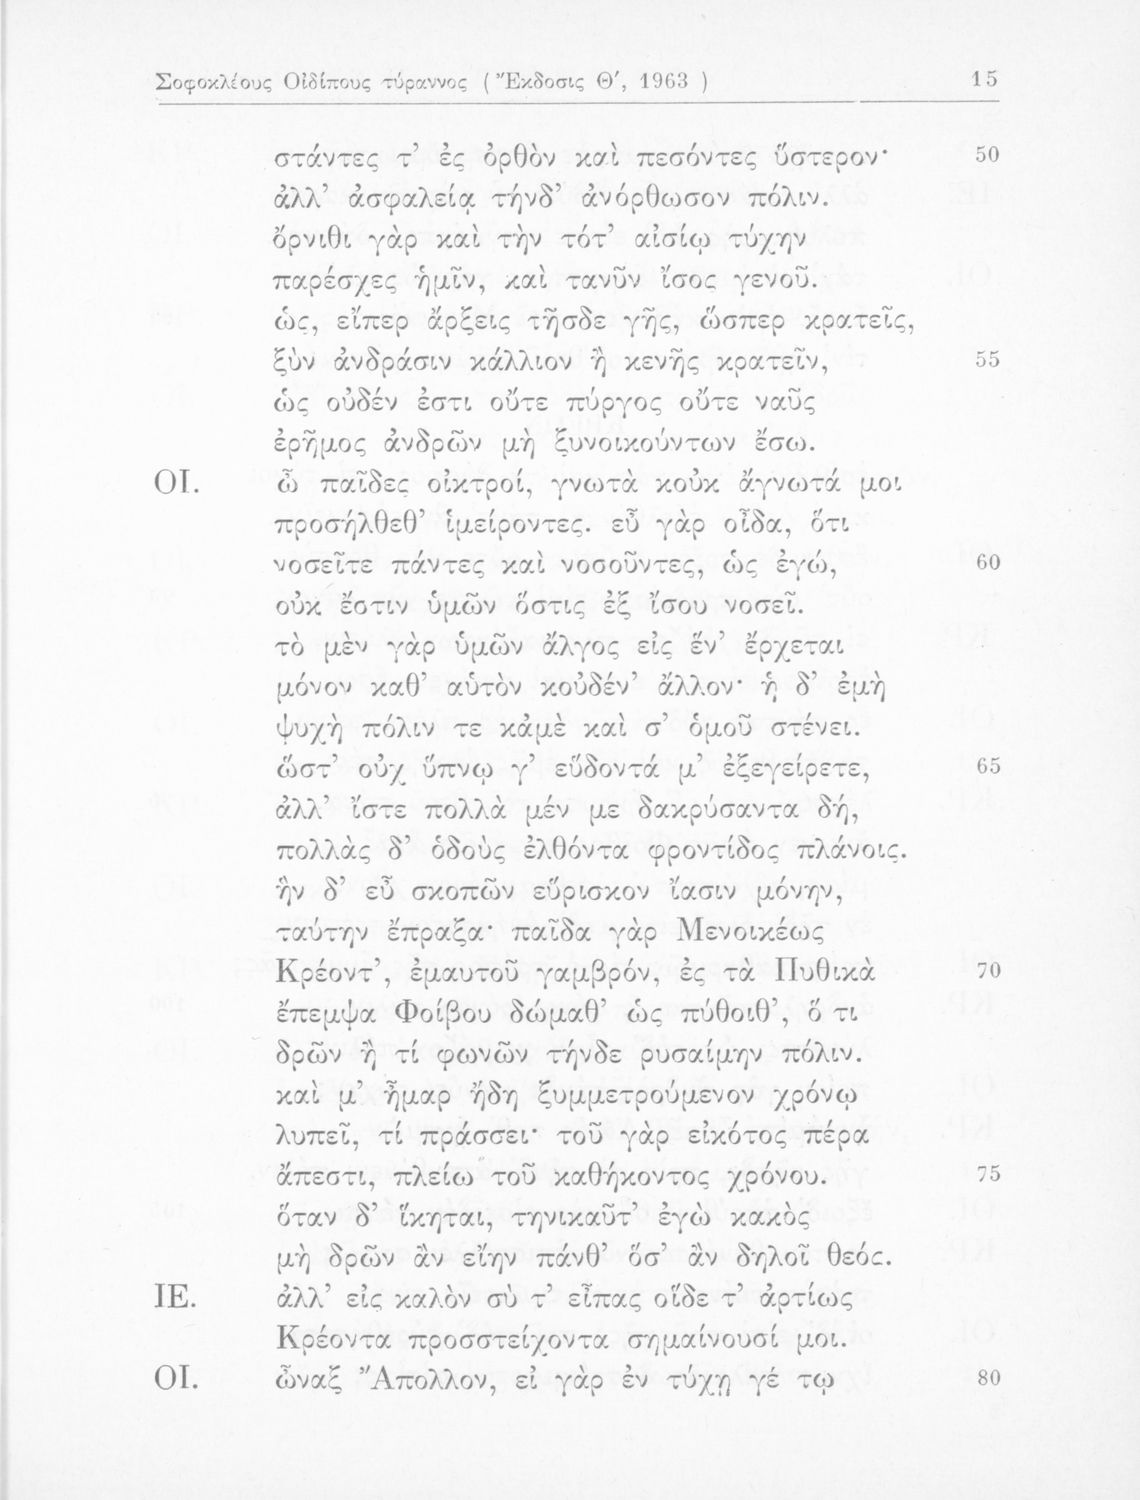 Σοφοκλέους Οἰδίπους τύραννος ( Ἔκδοσις Θ', 1963 ) 15
στάντες τ’ ἐς ὀρθὸν καὶ πεσόντες ὕστερον· 50
ἀλλ’ ἀσφαλείᾳ τήνδ’ ἀνόρθωσον πόλιν.
ὄρνιθι γὰρ καὶ τὴν τότ’ αἰσίῳ τύχην
παρέσχες ἡμῖν, καὶ τανῦν ἴσος γενοῦ.
ὡς, εἴπερ ἄρξεις τῆσδε γῆς, ὥσπερ κρατεῖς,
ξὺν ἀνδράσιν κάλλιον ἢ κενῆς κρατεῖν, 55
ὡς οὐδέν ἐστι οὔτε πύργος οὔτε ναῦς
ἐρῆμος ἀνδρῶν μὴ ξυνοικούντων ἔσω.
ΟΙ. ὦ παῖδες οἰκτροί, γνωτὰ κοὐκ ἄγνωτά μοι
προσήλθεθ’ ἱμείροντες. εὖ γὰρ οἶδα, ὅτι
νοσεῖτε πάντες καὶ νοσοῦντες, ὡς ἐγώ, 60
οὐκ ἔστιν ὑμῶν ὅστις ἐξ ἴσου νοσεῖ.
τὸ μὲν γὰρ ὑμῶν ἄλγος εἰς ἕν’ ἔρχεται
μόνον καθ’ αὑτὸν κοὐδέν’ ἄλλον· ἡ δ’ ἐμὴ
ψυχὴ πόλιν τε κἀμὲ καὶ σ’ ὁμοῦ στένει.
ὥστ’ οὐχ ὕπνῳ γ’ εὕδοντά μ’ ἐξεγείρετε, 65
ἀλλ’ ἴστε πολλὰ μέν με δακρύσαντα δή,
πολλὰς δ’ ὁδοὺς ἐλθόντα φροντίδος πλάνοις.
ἣν δ’ εὖ σκοπῶν εὕρισκον ἴασιν μόνην,
ταύτην ἔπραξα· παῖδα γὰρ Μενοικέως
Κρέοντ’, ἐμαυτοῦ γαμβρόν, ἐς τὰ Πυθικὰ 70
ἔπεμψα Φοίβου δώμαθ’ ὡς πύθοιθ’, ὅ τι
δρῶν ἢ τί φωνῶν τήνδε ρυσαίμην πόλιν.
καὶ μ’ ἦμαρ ἤδη ξυμμετρούμενον χρόνῳ
λυπεῖ, τί πράσσει· τοῦ γὰρ εἰκότος πέρα
ἄπεστι, πλείω τοῦ καθήκοντος χρόνου. 75
ὅταν δ’ ἵκηται, τηνικαῦτ’ ἐγὼ κακὸς
μὴ δρῶν ἂν εἴην πάνθ’ ὅσ’ ἂν δηλοῖ θεός.
ΙΕ. ἀλλ’ εἰς καλὸν σὺ τ’ εἶπας οἵδε τ’ ἀρτίως
Κρέοντα προσστείχοντα σημαίνουσί μοι.
ΟΙ. ὦναξ Ἄπολλον, εἰ γὰρ ἐν τύχῃ γέ τῳ 80